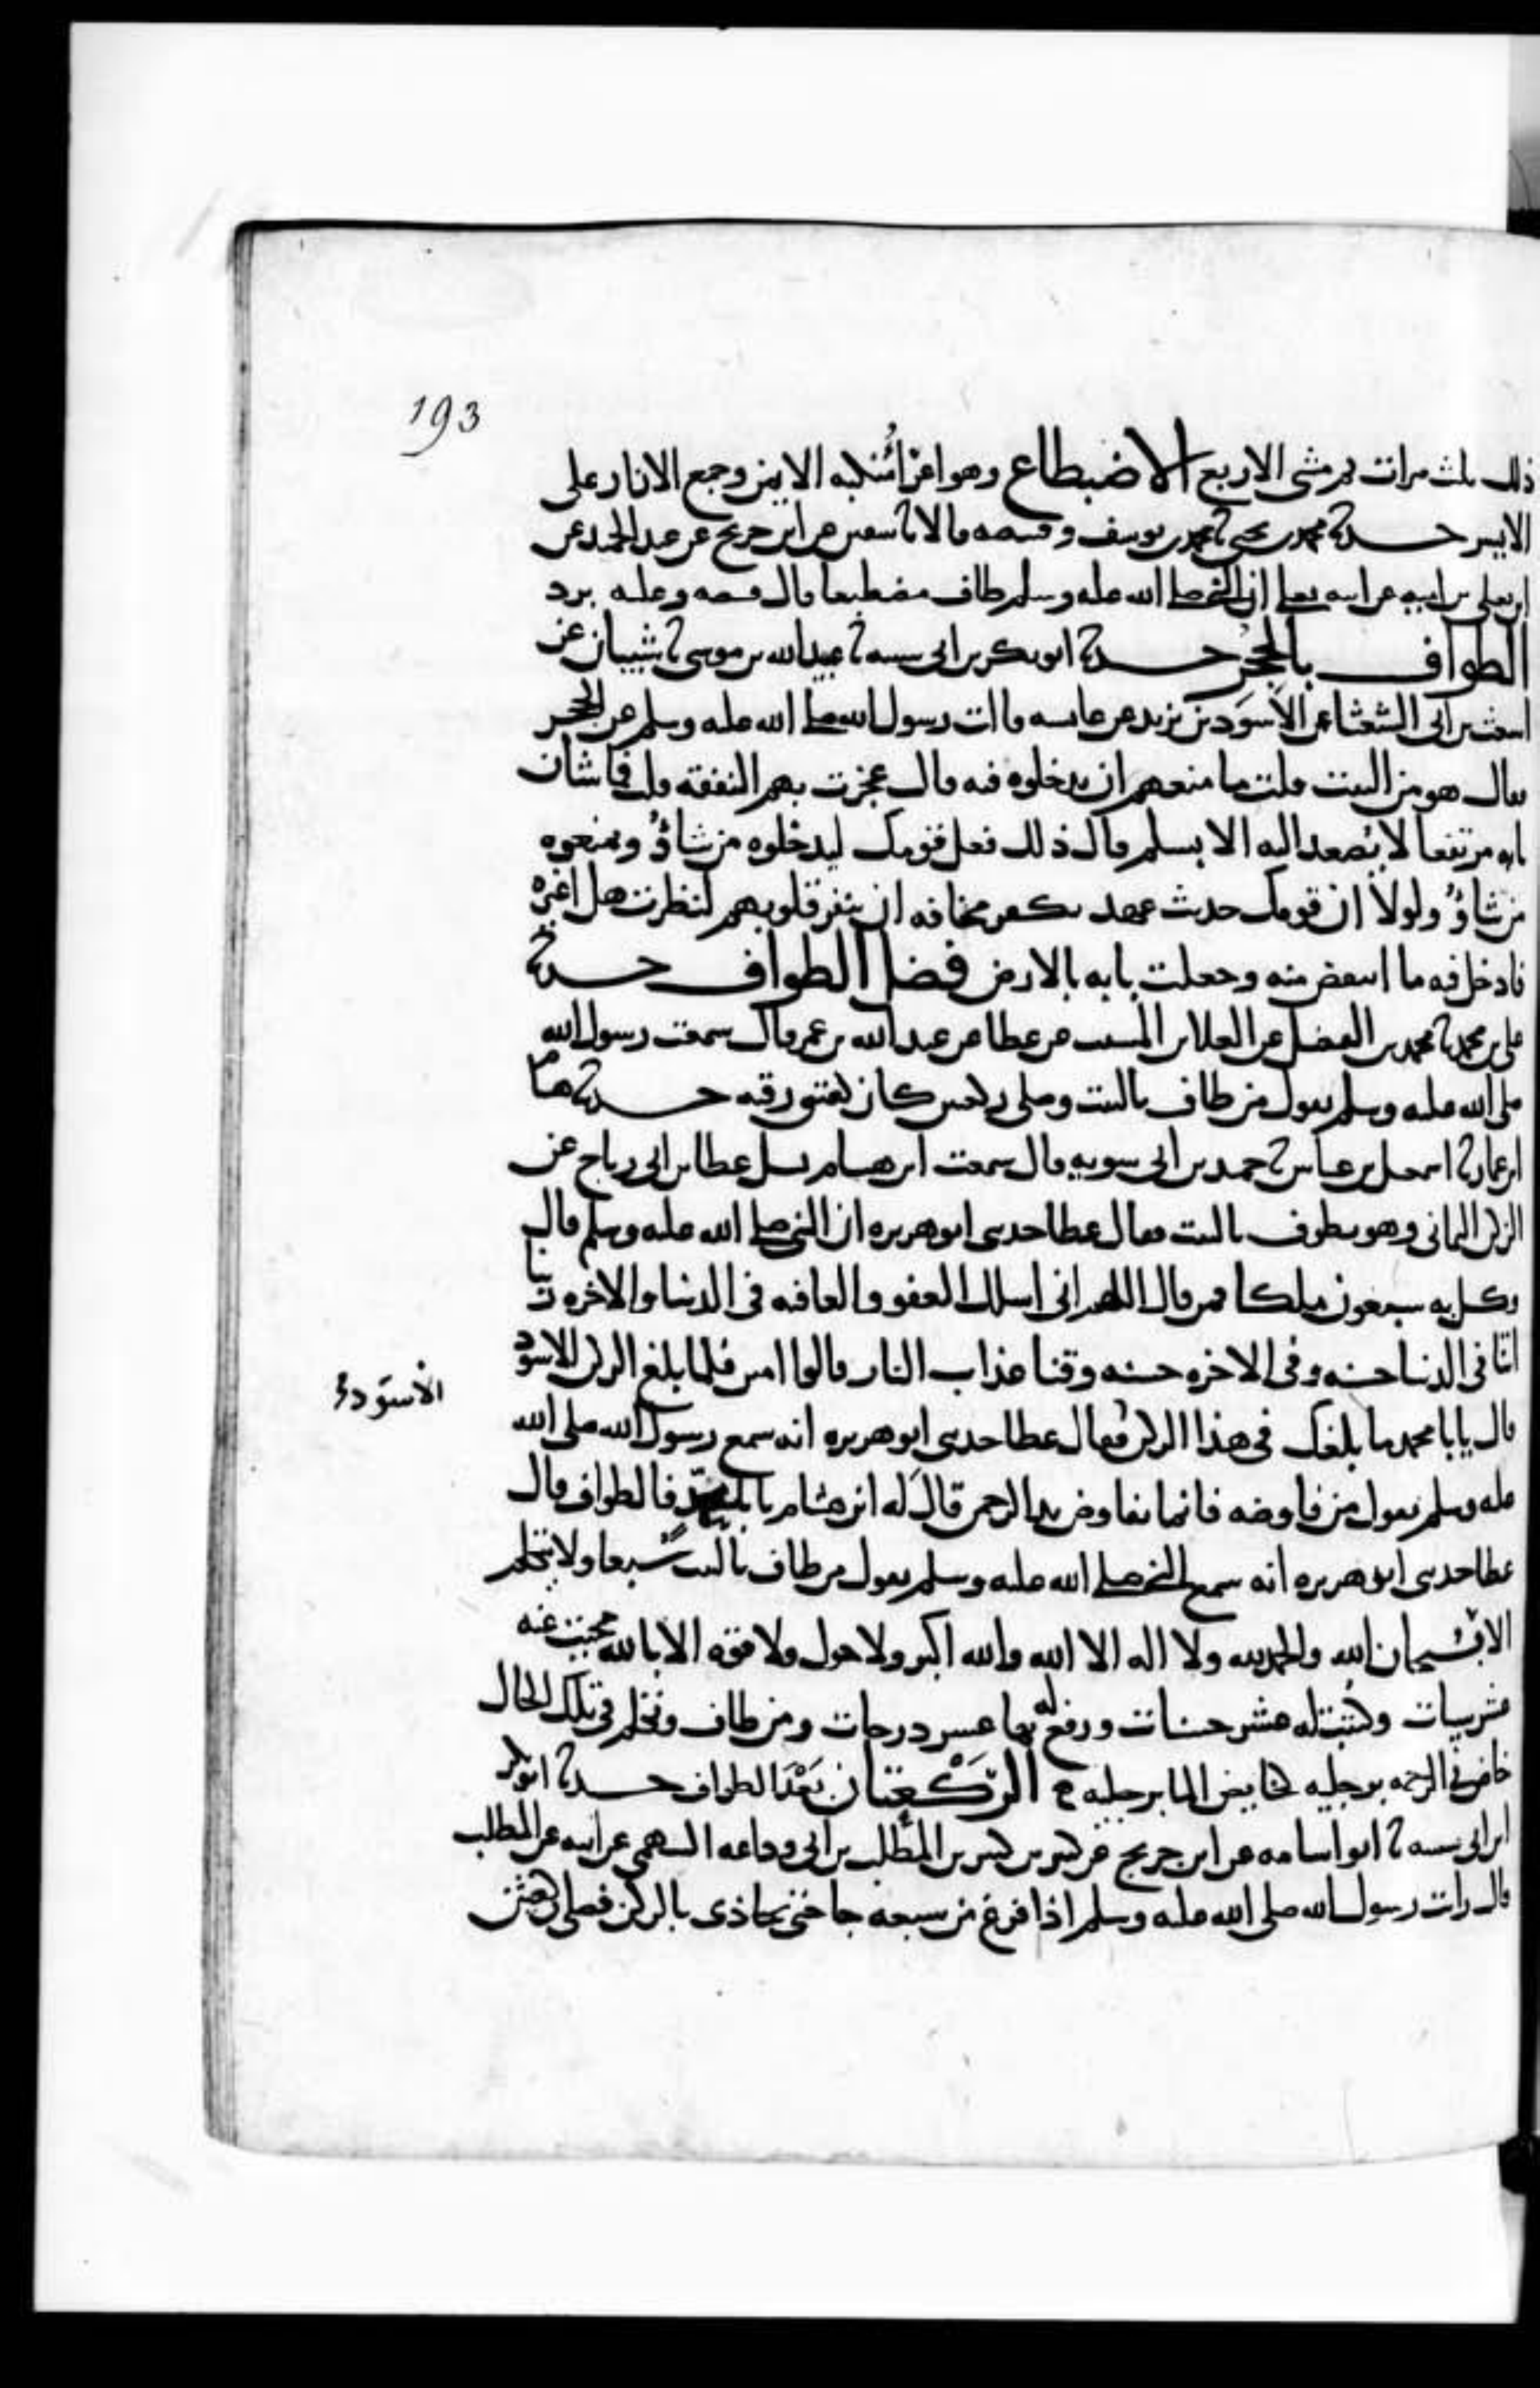 193
ذلك ثلث مرات ثم مشى الاربع الاضطباع وهو اعرا منكبه الايمن وجمع الازار على
الايسر حدثنا محمد بن يحيى ثنا محمد بن يوسف وقبيصه قالا ثنا سفين عن ابن جريج عن عبد الحميد عن
ابن يعلى بن اميه عن ابيه يعلى ان النبي صلى الله عليه وسلم طاف مضطبعا قال قبيصه وعليه برد
الطواف بالحجر حدثنا ابو بكر بن ابي شيبه ثنا عبيد الله بن موسى ثنا شيبان عن
اشعث بن ابي الشعثا عن الاسود بن يزيد عن عايشه قالت سالت رسول الله صلى الله عليه وسلم عن الحجر
فقال هو من البيت قلت ما منعهم ان يدخلوه فيه قال عجزت بهم النفقه قلت فما شان
بابه مرتفعا لا يصعد اليه الا بسلم قال ذلك فعل قومك ليدخلوه من شاؤا ويمنعوه
من شاؤا ولولا ان قومك حديث عهد بكفر مخافه ان ينفر قلوبهم لنظرت هل اغيره
فادخل فيه ما انتقص منه وجعلت بابه بالارض فضل الطواف حدثنا
علي بن محمد ثنا محمد بن الفضيل عن العلا بن المسيب عن عطا عن عبد الله بن عمر قال سمعت رسول الله
صلى الله عليه وسلم يقول من طاف بالبيت وصلى ركعتين كان كعتق رقبه حدثنا هشام
ابن عمار ثنا اسمعيل بن عياش ثنا حميد بن ابي سويه قال سمعت ابن هشام يسل عطا بن ابي رباح عن
الركن اليماني وهو يطوف بالبيت فقال عطا حدثني ابو هريره ان النبي صلى الله عليه وسلم قال
وكل به سبعون ملكا فمن قال اللهم اني اسلك العفو والعافيه في الدنيا والاخره ربنا
اتنا في الدنيا حسنه وفي الاخره حسنه وقنا عذاب النار قالوا امين فلما بلغ الركن الاسود
الاسود
قال يا با محمد ما بلغك في هذا الركن فقال عطا حدثني ابو هريره انه سمع رسول الله صلى الله
عليه وسلم يقول من فاوضه فانما يفاوض يد الرحمن قال له ابن هشام يا با محمد فالطواف قال
عطا حدثني ابو هريره انه سمع النبي صلى الله عليه وسلم يقول من طاف بالبيت سبعا ولا يتكلم
الا بسبحان الله والحمد لله ولا اله الا الله والله اكبر ولا حول ولا قوه الا بالله محيت عنه
عشر سيات وكتبت له عشر حسنات ورفع له بها عشر درجات ومن طاف وتكلم في تلك الحال
خاض في الرحمه برجليه كخايض الما برجليه الركعتان بعد الطواف حدثنا ابو بكر
ابن ابي شيبه ثنا ابو اسامه عن ابن جريج عن كثير بن كثير بن المطلب بن ابي وداعه السهمي عن ابيه عن المطلب
قال رايت رسول الله صلى الله عليه وسلم اذا فرغ من سبعه جا حتى يحاذي بالركن فصلى ركعتين